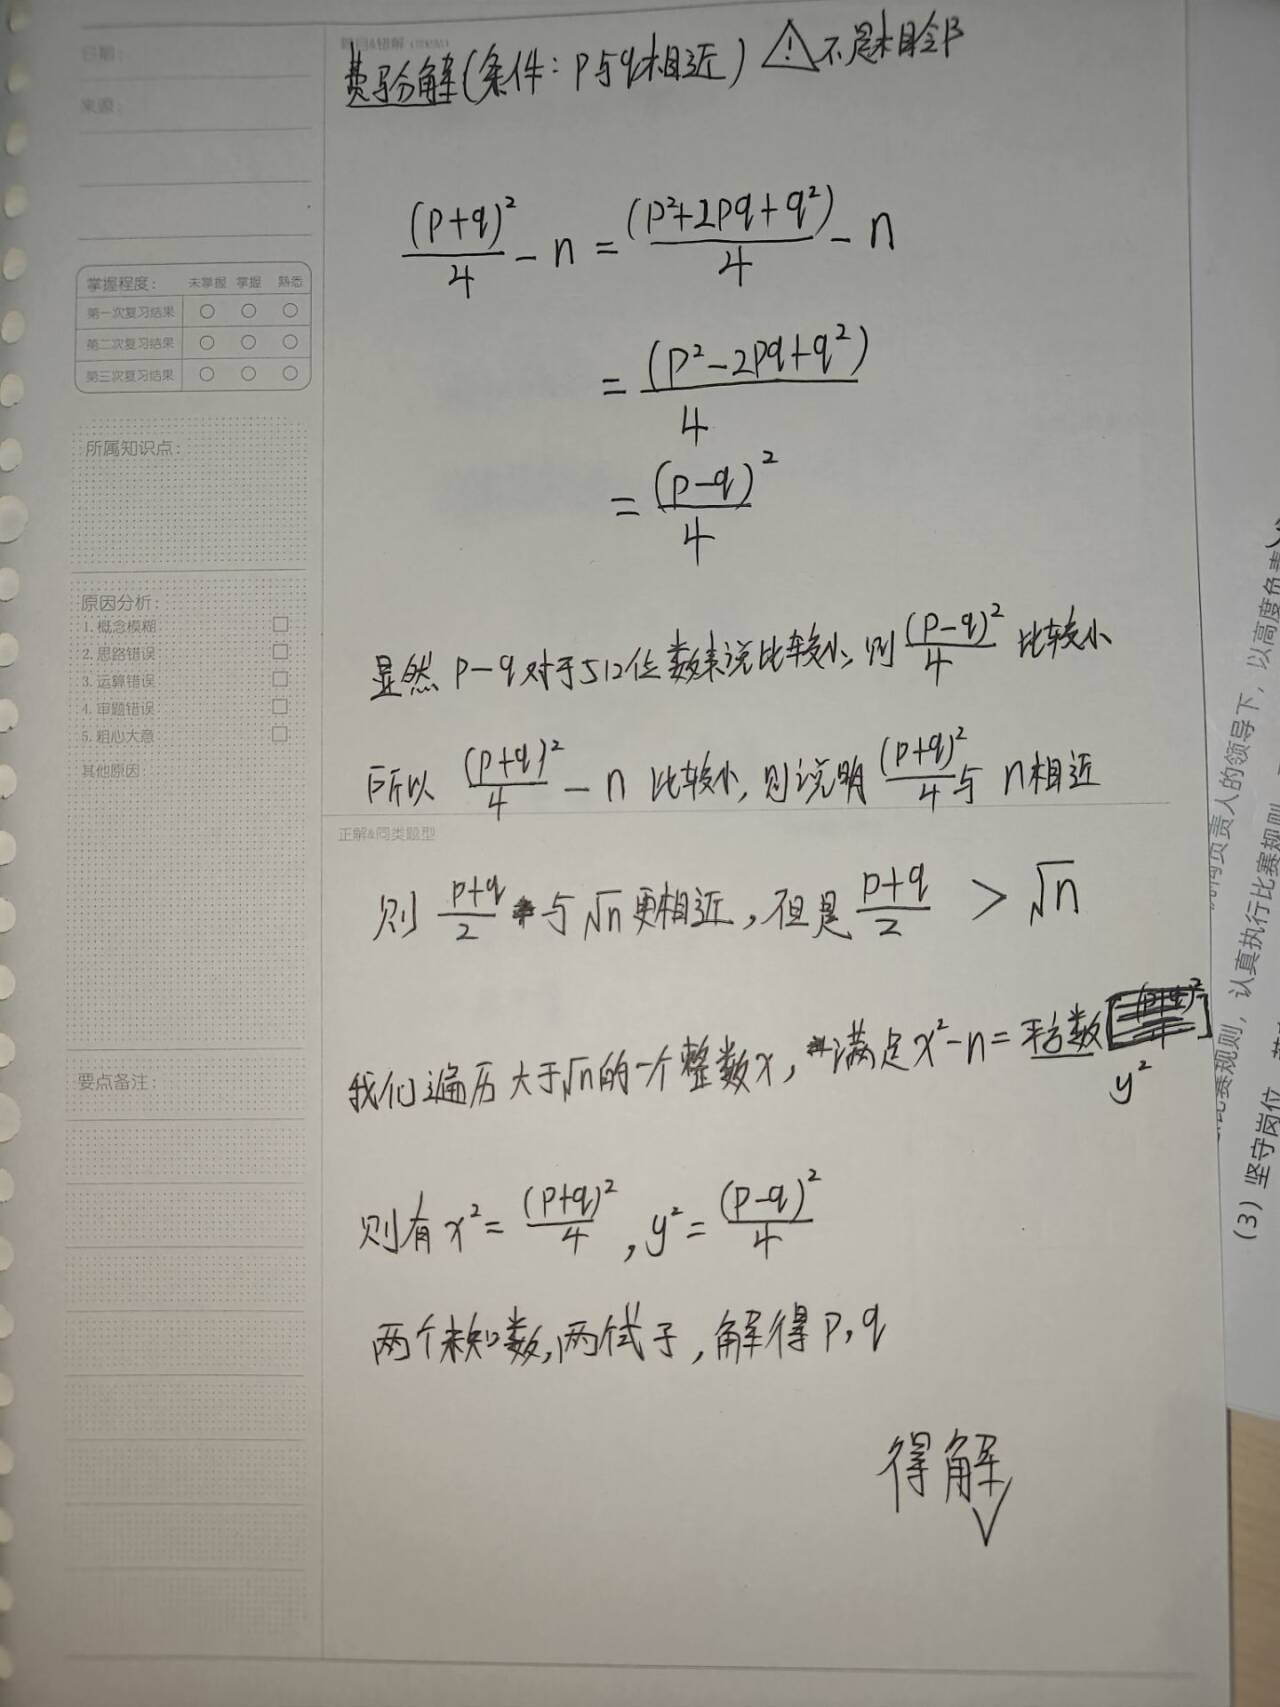 日期：
来源：
题目&错解
费马分解(条件：p与q相近) ⚠不是相邻
(p+q)²/4 - n = (p²+2pq+q²)/4 - n
= (p²-2pq+q²)/4
= (p-q)²/4
显然 p-q对于512位数来说比较小，则 (p-q)²/4 比较小
所以 (p+q)²/4 - n 比较小，则说明 (p+q)²/4 与 n相近
正解&同类题型
则 p+q/2 与√n更相近，但是 p+q/2 > √n
我们遍历大于√n的一个整数x，满足x²-n=平方数
y²
则有x²= (p+q)²/4 , y²= (p-q)²/4
两个未知数，两个式子，解得p,q
得解
掌握程度： 未掌握 掌握 熟悉
第一次复习结果
第二次复习结果
第三次复习结果
所属知识点：
原因分析：
1. 概念模糊
2. 思路错误
3. 运算错误
4. 审题错误
5. 粗心大意
其他原因
要点备注：
负责人的领导下，以高度负责
比赛规则，认真执行比赛规则
(3) 坚守岗位